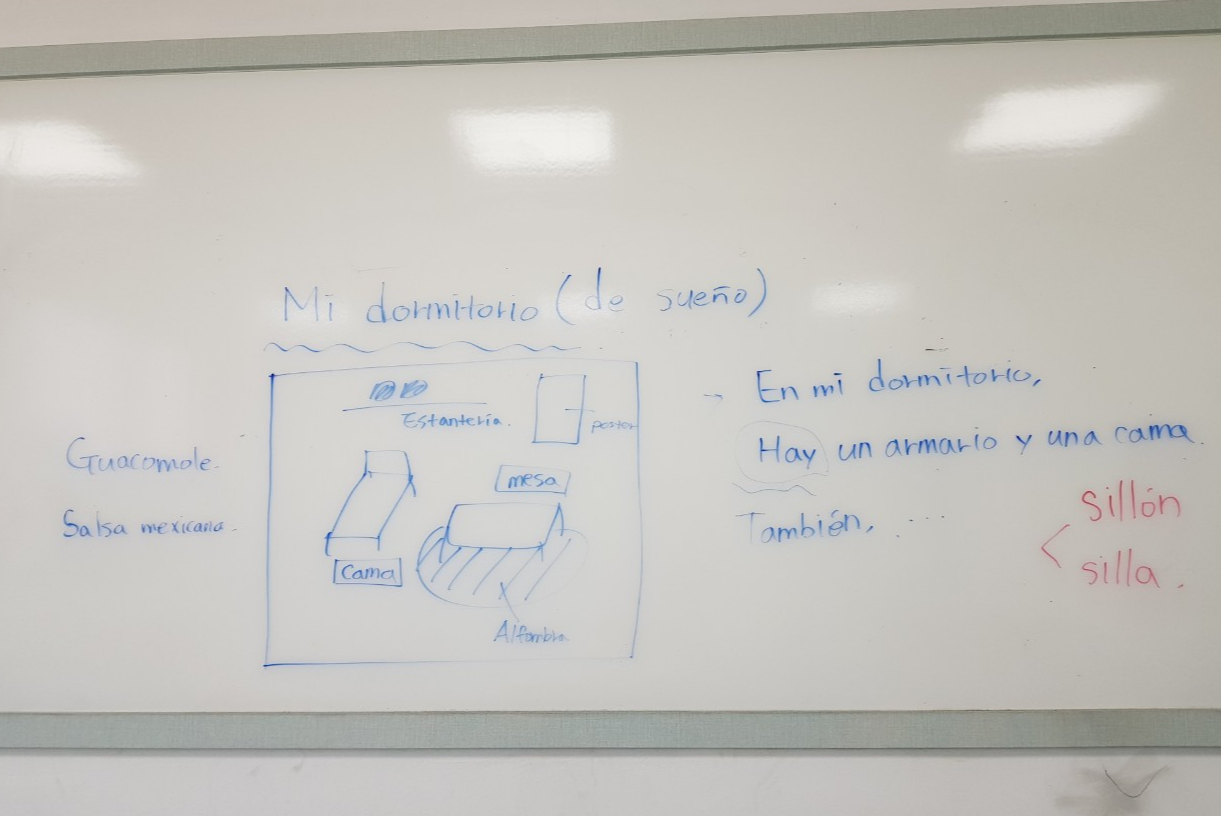 Mi dormitorio (de sueño)
Estantería.
poster
mesa
Cama
Alfombra
Guacomole.
Salsa mexicana.
En mi dormitorio,
Hay un armario y una cama.
También, ...
sillón
silla.